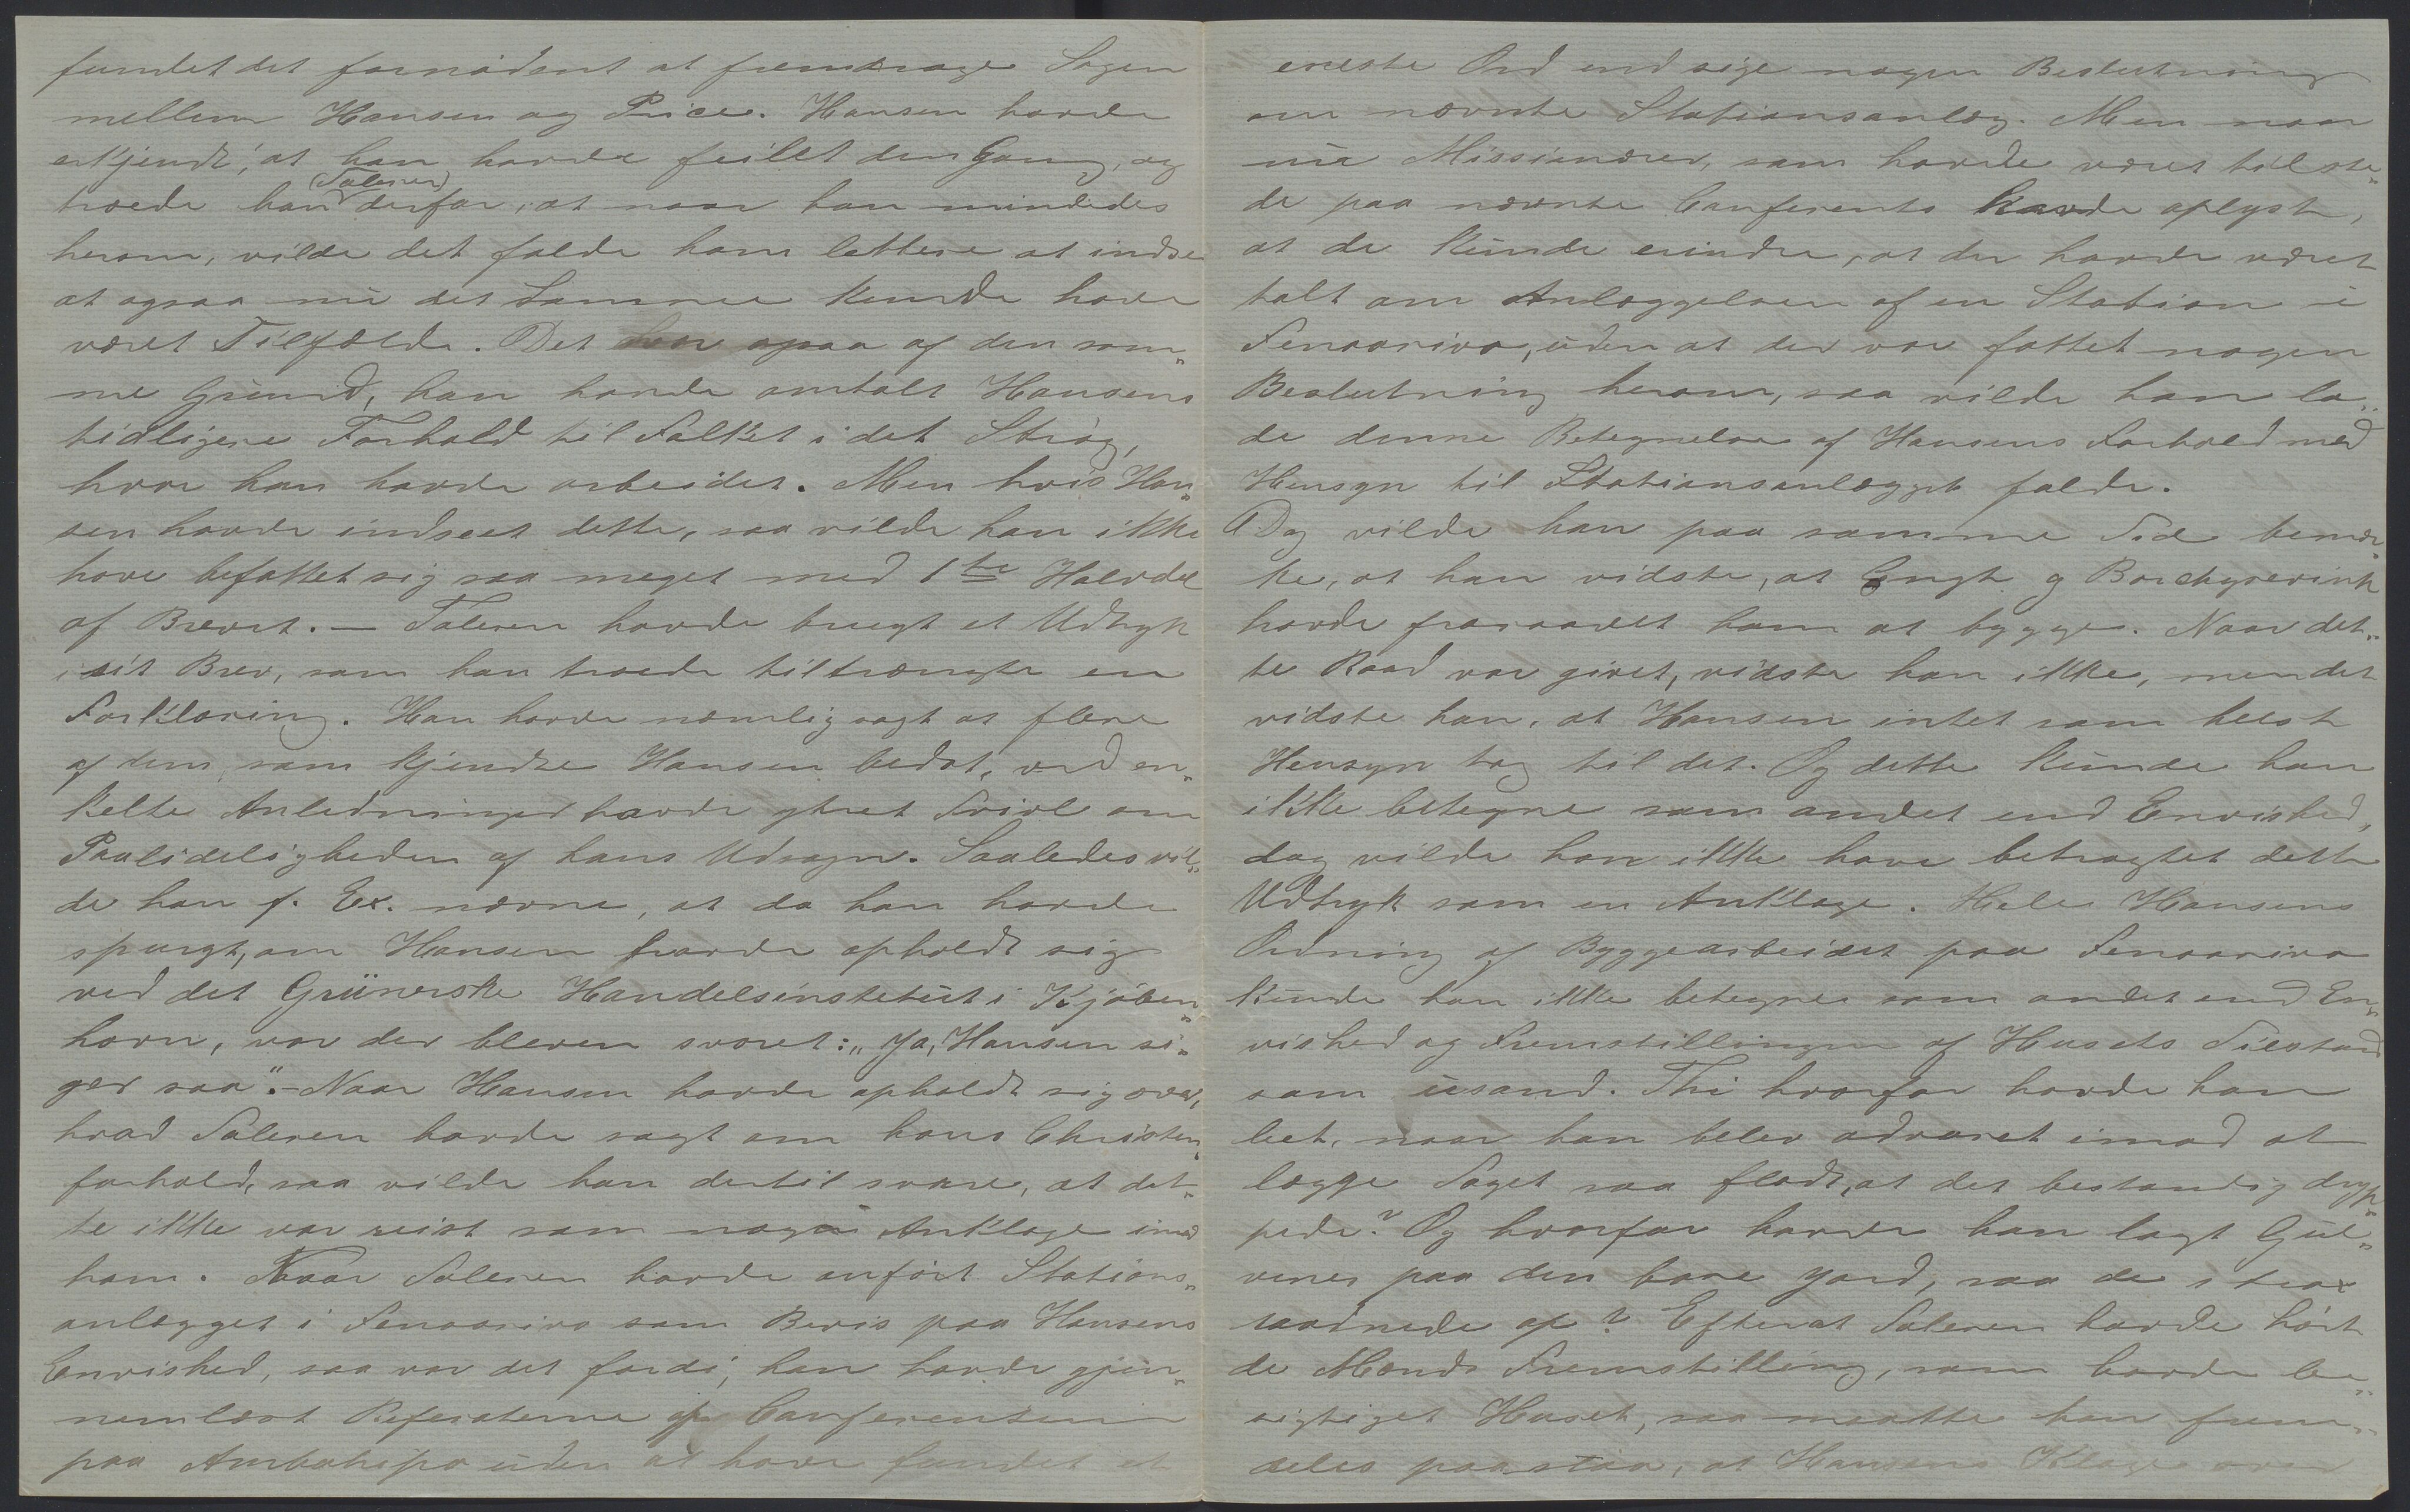 fundet det fornødent at fremdrage Sagen
mellem Hansen og Price. Hansen havde
erkjendt, at han havde feilet den Gang, og
troede han (Taleren) derfor, at naar han mindedes
herom, vilde det falde ham lettere at indse
at ogsaa nu det Samme kunde have
været Tilfælde. Det var ogsaa af den sam„
me Grund, han havde omtalt Hansens
tidligere Forhold til Folket i det Strøg,
hvor han havde arbeidet. Men hvis Han„
sen havde indseet dette, saa vilde han ikke
have befattet sig saa meget med 1ste Halvdel
af Brevet. — Taleren havde brugt et Udtryk
i sit Brev, som han troede tiltrængte en
Forklaring. Han havde nemlig sagt at flere
af dem, som kjendte Hansen bedst, ved en„
kelte Anledninger havde ytret Tvivl om
Paalideligheden af hans Udsagn. Saaledes vil„
de han f. Ex. nævne, at da han havde
spurgt, om Hansen havde opholdt sig
ved det Grünerske Handelsinstetut i Kjøben„
havn, var der bleven svaret: „Ja, Hansen si„
ger saa". – Naar Hansen havde opholdt sig over,
hvad Taleren havde sagt om hans Christen„
forhold, saa vilde han dertil svare, at det„
te ikke var reist som nogen Anklage imod
ham. Naar Taleren havde anført Stations„
anlægget i Fenoarivo som Bevis paa Hansens
Envished, saa var det fordi, han havde gjen„
nemlæst Referaterne af Conferentsen
paa Ambatofipo uden at have fundet et
eneste Ord end sige nogen Beslutning
om nævnte Stationsanlæg. Men naar
nu Missionærer, som havde været tilste„
de paa nævnte Conferents havde oplyst,
at de kunde erindre, at der havde været
talt om Anlæggelsen af en Station i
Fenoarivo, uden at der var fattet nogen
Beslutning herom, saa vilde han la„
de denne Betegnelse af Hansens Forhold med
Hensyn til Stationsanlægget falde.
Dog vilde han paa samme Tid bemær„
ke, at han vidste, at Engh og Borchgrevink
havde fraraadet ham at bygge. Naar det„
te Raad var givet, vidste han ikke, men det
vidste han, at Hansen intet som helst
Hensyn tog til det. Og dette kunde han
ikke betegne som andet end Envished,
dog vilde han ikke have betragtet dette
Udtryk som en Anklage. Hele Hansens
Ordning af Byggearbeidet paa Fenoarivo
kunde han ikke betegne som andet end En„
vished og Fremstillingen af Husets Tilstand
som usand. Thi hvorfor havde han
leet, naar han blev advaret imod at
lægge Taget saa fladt, at det bestandig dryp„
pede? Og hvorfor havde han lagt Gul„
vene paa den bare Jord, saa de strax
raadnede op? Efterat Taleren havde hørt
de Mænds Fremstilling, som havde be„
sigtiget Huset, saa maatte han frem„
deles paastaa, at Hansens Klage over